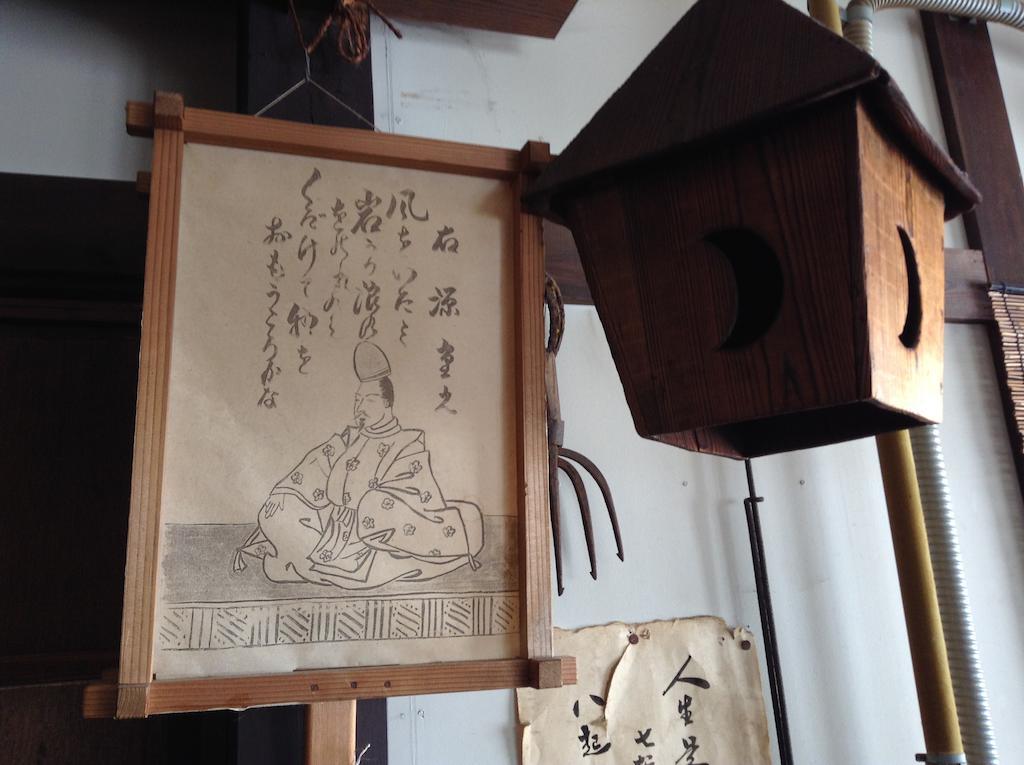 右 源重之
風をいたみ
岩うつ波の
をのれのみ
くだけて物を
おもふころかな
人生是
七転
八起